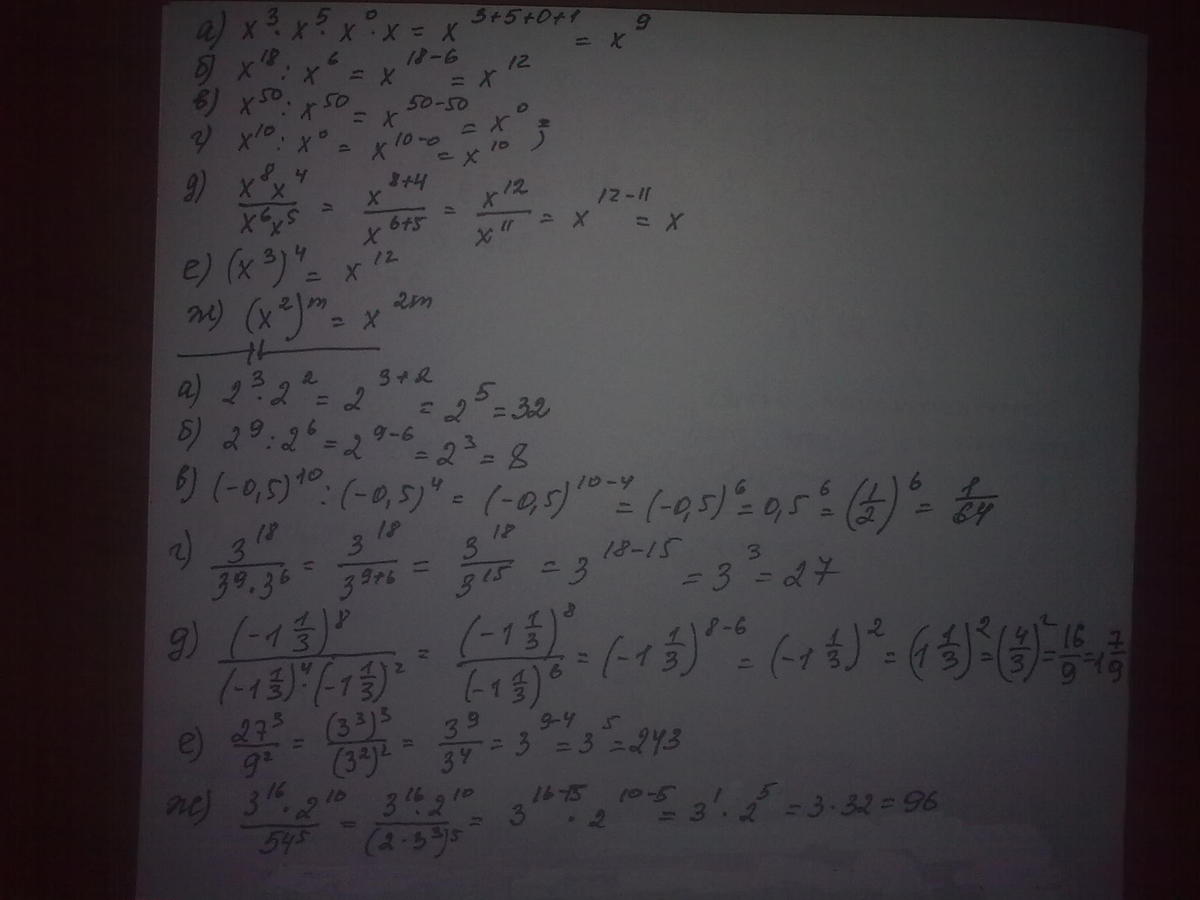 а) x³·x⁵·x⁰·x = x³⁺⁵⁺⁰⁺¹ = x⁹
б) x¹⁸ : x⁶ = x¹⁸⁻⁶ = x¹²
в) x⁵⁰ : x⁵⁰ = x⁵⁰⁻⁵⁰ = x⁰ =
г) x¹⁰ : x⁰ = x¹⁰⁻⁰ = x¹⁰
д) x⁸x⁴/x⁶x⁵ = x⁸⁺⁴/x⁶⁺⁵ = x¹²/x¹¹ = x¹²⁻¹¹ = x
е) (x³)⁴ = x¹²
ж) (x²)ᵐ = x²ᵐ
а) 2³·2² = 2³⁺² = 2⁵ = 32
б) 2⁹ : 2⁶ = 2⁹⁻⁶ = 2³ = 8
в) (-0,5)¹⁰ : (-0,5)⁴ = (-0,5)¹⁰⁻⁴ = (-0,5)⁶ = 0,5⁶ = (1/2)⁶ = 1/64
г) 3¹⁸/3⁹·3⁶ = 3¹⁸/3⁹⁺⁶ = 3¹⁸/3¹⁵ = 3¹⁸⁻¹⁵ = 3³ = 27
д) (-1 1/3)⁸/(-1 1/3)⁴·(-1 1/3)² = (-1 1/3)⁸/(-1 1/3)⁶ = (-1 1/3)⁸⁻⁶ = (-1 1/3)² = (1 1/3)² = (4/3)² = 16/9 = 1 7/9
е) 27³/9² = (3³)³/(3²)² = 3⁹/3⁴ = 3⁹⁻⁴ = 3⁵ = 243
ж) 3¹⁶·2¹⁰/54⁵ = 3¹⁶·2¹⁰/(2·3³)⁵ = 3¹⁶⁻¹⁵·2¹⁰⁻⁵ = 3¹·2⁵ = 3·32 = 96